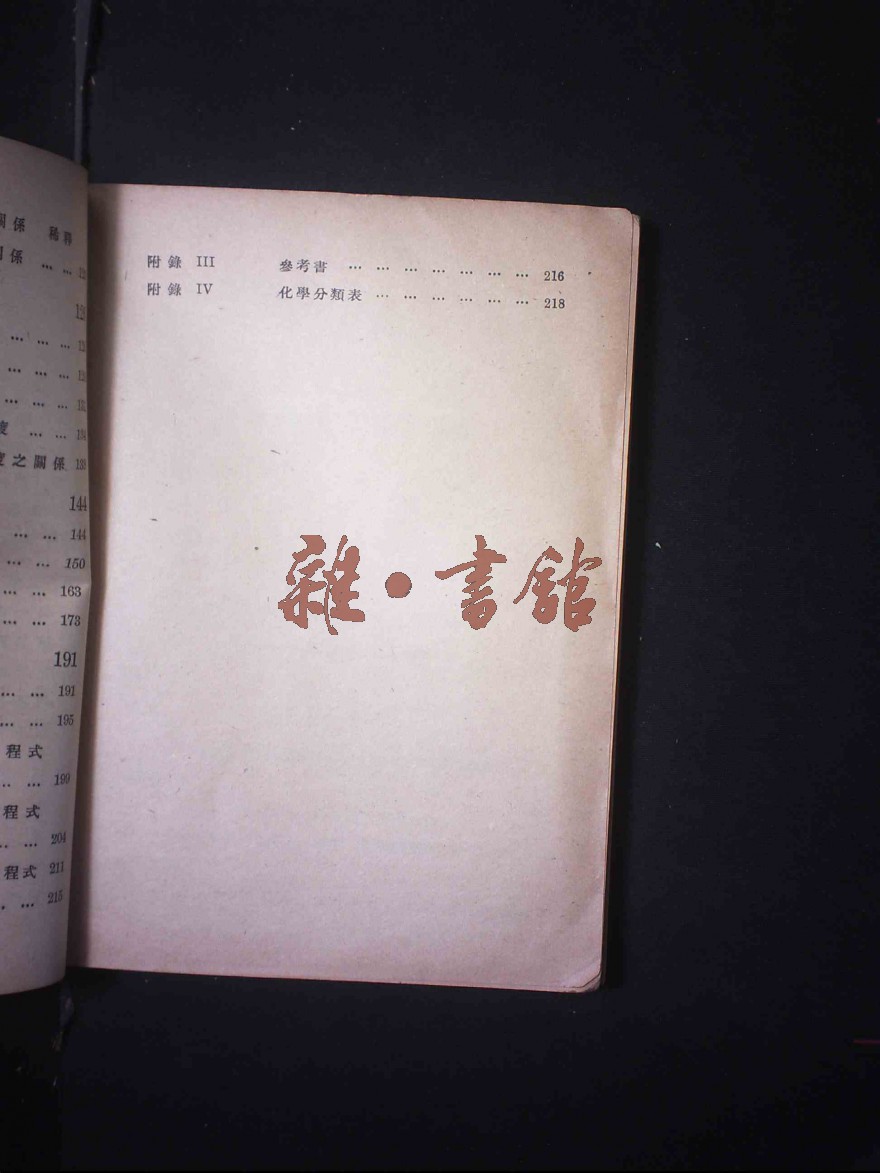 關係 稀釋
關係 … …
… … …
… … …
… … …
度 … …
度之關係 138
144
… … 144
… … 150
… … 163
… … 173
191
… … 191
… … 195
程式
… … 199
程式
… … 204
程式 211
… … 215
附錄 III 參考書 … … … … … … … 216
附錄 IV 化學分類表 … … … … … … 218
雜·書館